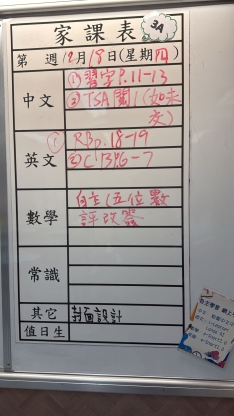 家課表
3A
第 週12月18日(星期四)
中文
①習字P.11-13
②TSA閱1(如未
交)
英文
①RBp.18-19
②CB P.6-7
數學
自主(五位數
評改簽
常識
其它
封面設計
值日生